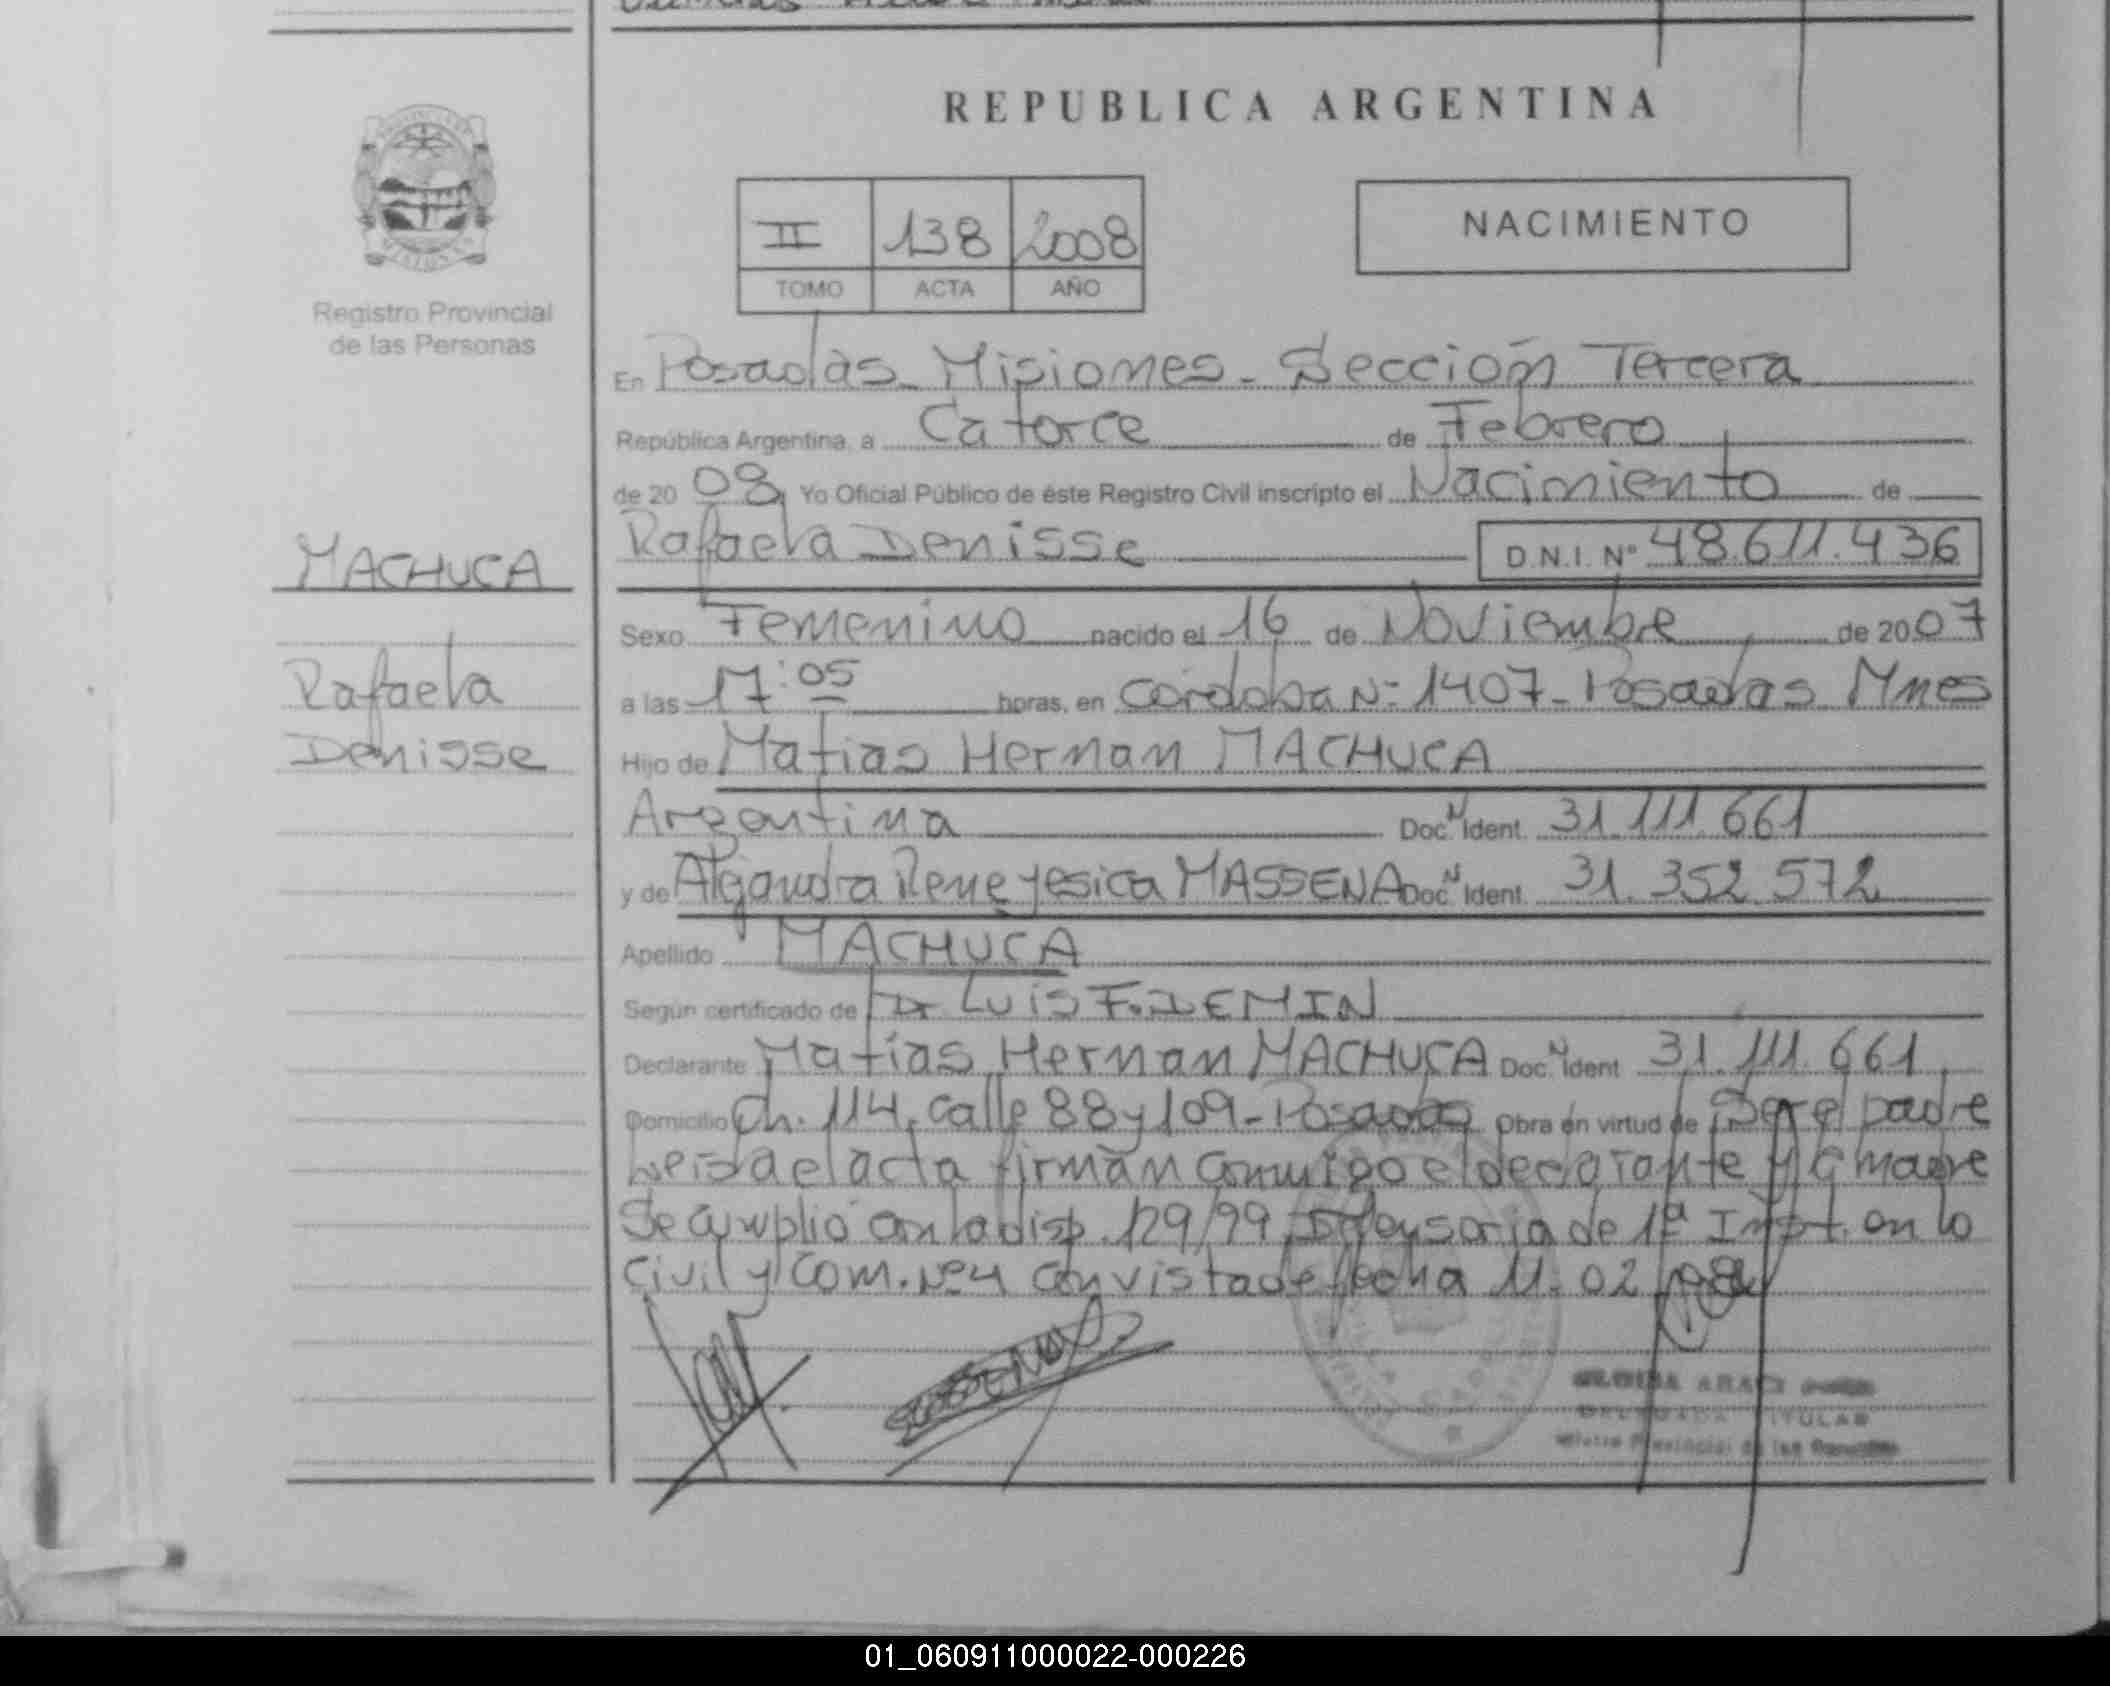 REPUBLICA ARGENTINA
Registro Provincial
de las Personas
II 138 2008
TOMO ACTA AÑO
NACIMIENTO
En Posadas Misiones - Sección Tercera
República Argentina, a Catorce de Febrero
de 20 08, Yo Oficial Público de éste Registro Civil inscripto el Nacimiento de
Rafaela Denisse D.N.I. Nº 48.611.436
MACHUCA
Rafaela
Denisse
Sexo Femenino nacido el 16 de Noviembre de 20 07
a las 17:05 horas, en Cordoba Nº 1407 - Posadas Mnes
Hijo de Matias Hernan MACHUCA
Argentina Doc. N Ident. 31.111.661
y de Alejandra Rene Yesica MASSENA Doc. N Ident. 31.352.572
Apellido MACHUCA
Según certificado de Dr. Luis F. DEMIN
Declarante Matias Hernan MACHUCA Doc. N Ident. 31.111.661
Domicilio Ch. 114, calle 88 y 109 - Posadas Obra en virtud de Ser el padre
el acta firman conmigo el declarante y la madre
Se cumplió con la disp. 129/99 Defensoria de 1ª Inst. en lo
Civil y Com. Nº 4 con vista de fecha 11-02-08
TITULAR
01_060911000022-000226